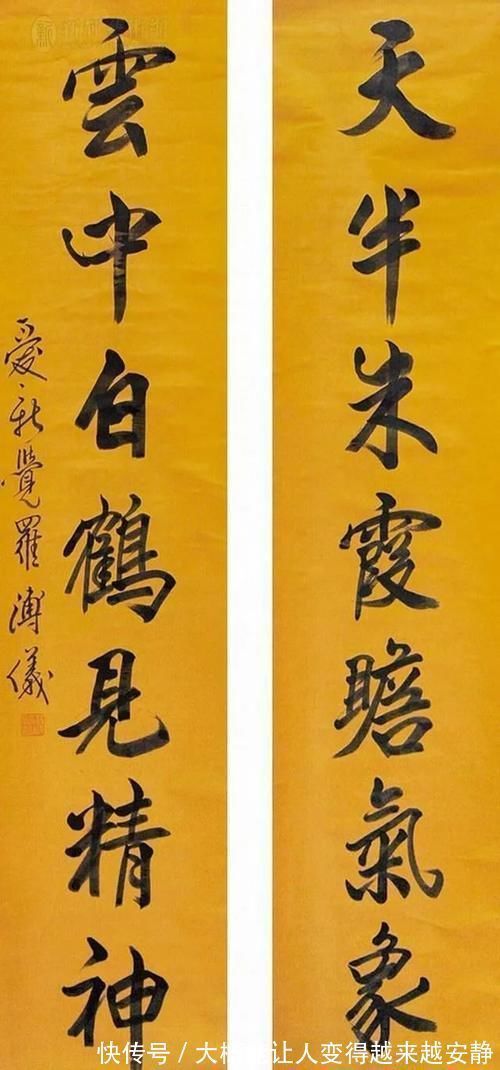 天半朱霞瞻氣象
雲中白鶴見精神
愛新覺羅溥儀
快传号/大
让人变得越来越安静